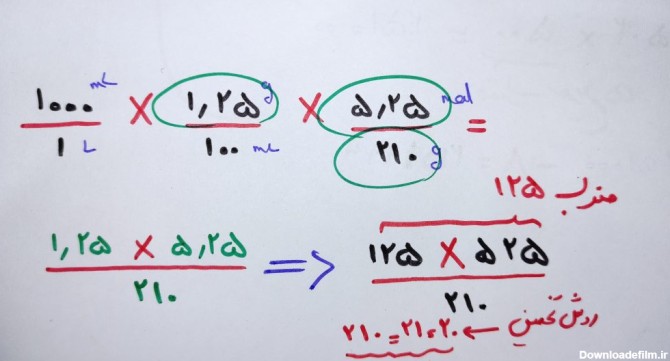 ۱۰۰۰ mL / ۱ L × ۱٫۲۵ g / ۱۰۰ mL × ۵٫۲۵ / ۲۱۰ g =
مضرب ۱۲۵
۱٫۲۵ × ۵٫۲۵ / ۲۱۰ => ۱۲۵ × ۵۲۵ / ۲۱۰
روش تخمینی ← ۲۰ = ۲۱ = ۲۱۰
Downloadefilm.ir